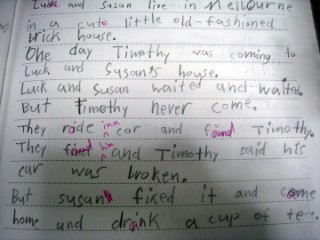 Luck and Susan live in Melbourne
in a cute little old-fashioned
brick house.
One day Timothy was coming to
Luck and Susan's house.
Luck and Susan waited and waited.
But timothy never come.
They ride in a car and found Timothy.
They him and Timothy said his
car was broken.
But susan fixed it and came
home and drank a cup of tea.